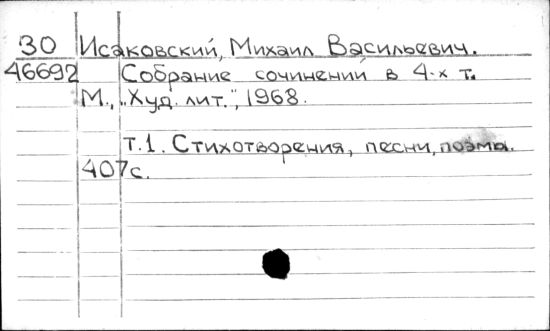 30 Исаковский, Михаил Васильевич.
46692 Собрание сочинений в 4-х т.
М., "Худ. лит.", 1968.
т.1. Стихотворения, песни, поэмы.
407с.